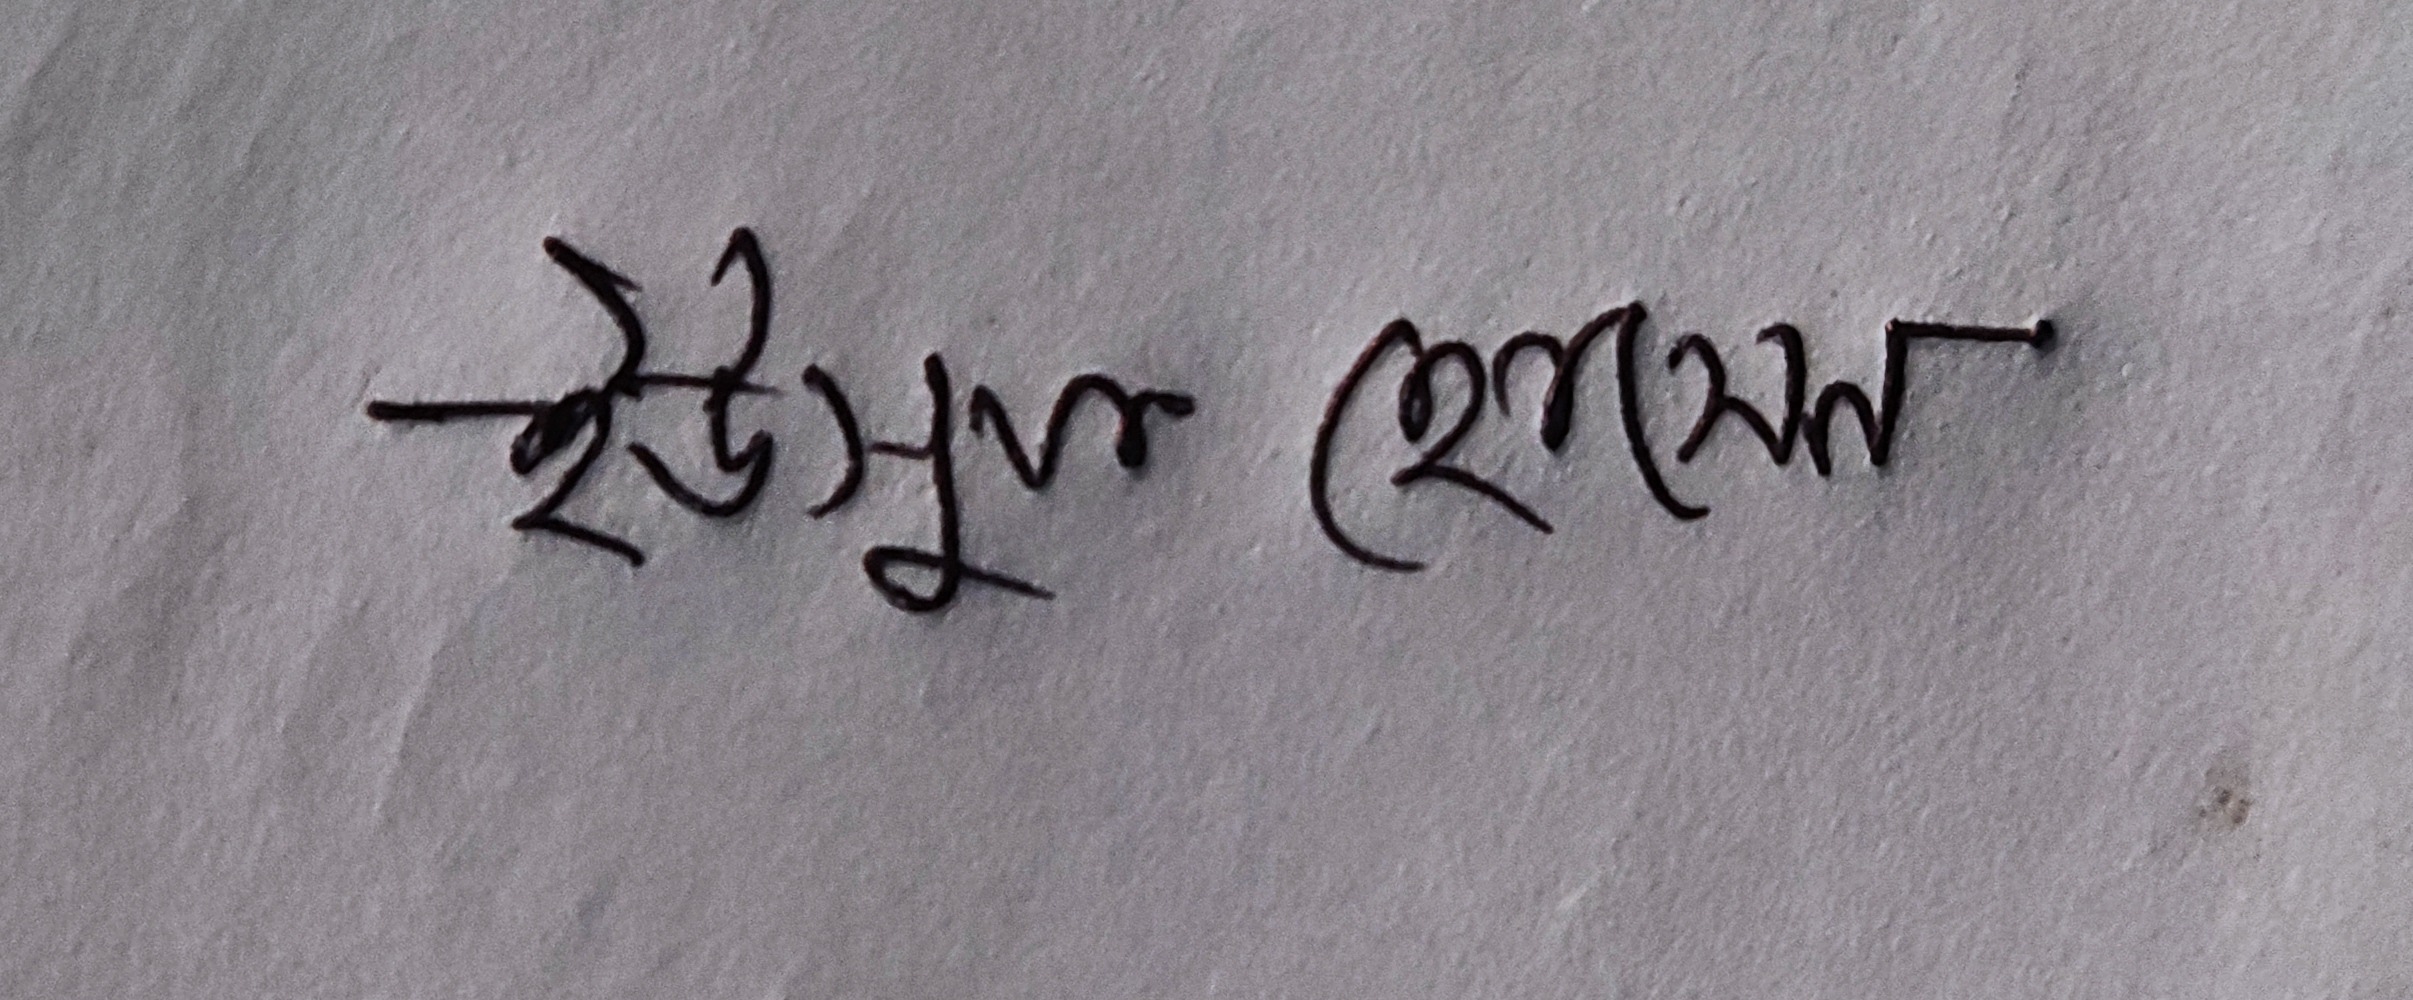 ইউসুফ হোসেন